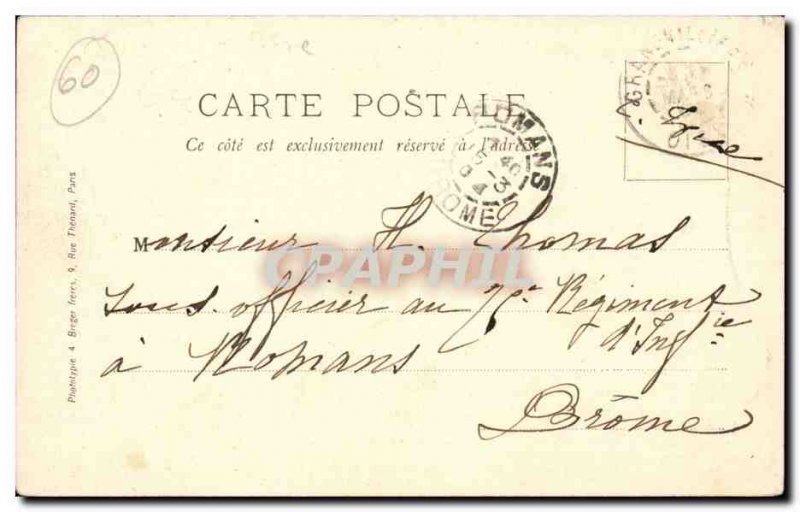 60
CARTE POSTALE
Ce côté est exclusivement réservé à l'adresse
ROMANS
DROME
Monsieur H. Thomas
sous. officier au 75e Régiment
d'Infie
à Romans
Drôme
Phototypie A. Breger frères, 9, Rue Thénard, Paris
CPAPHIL